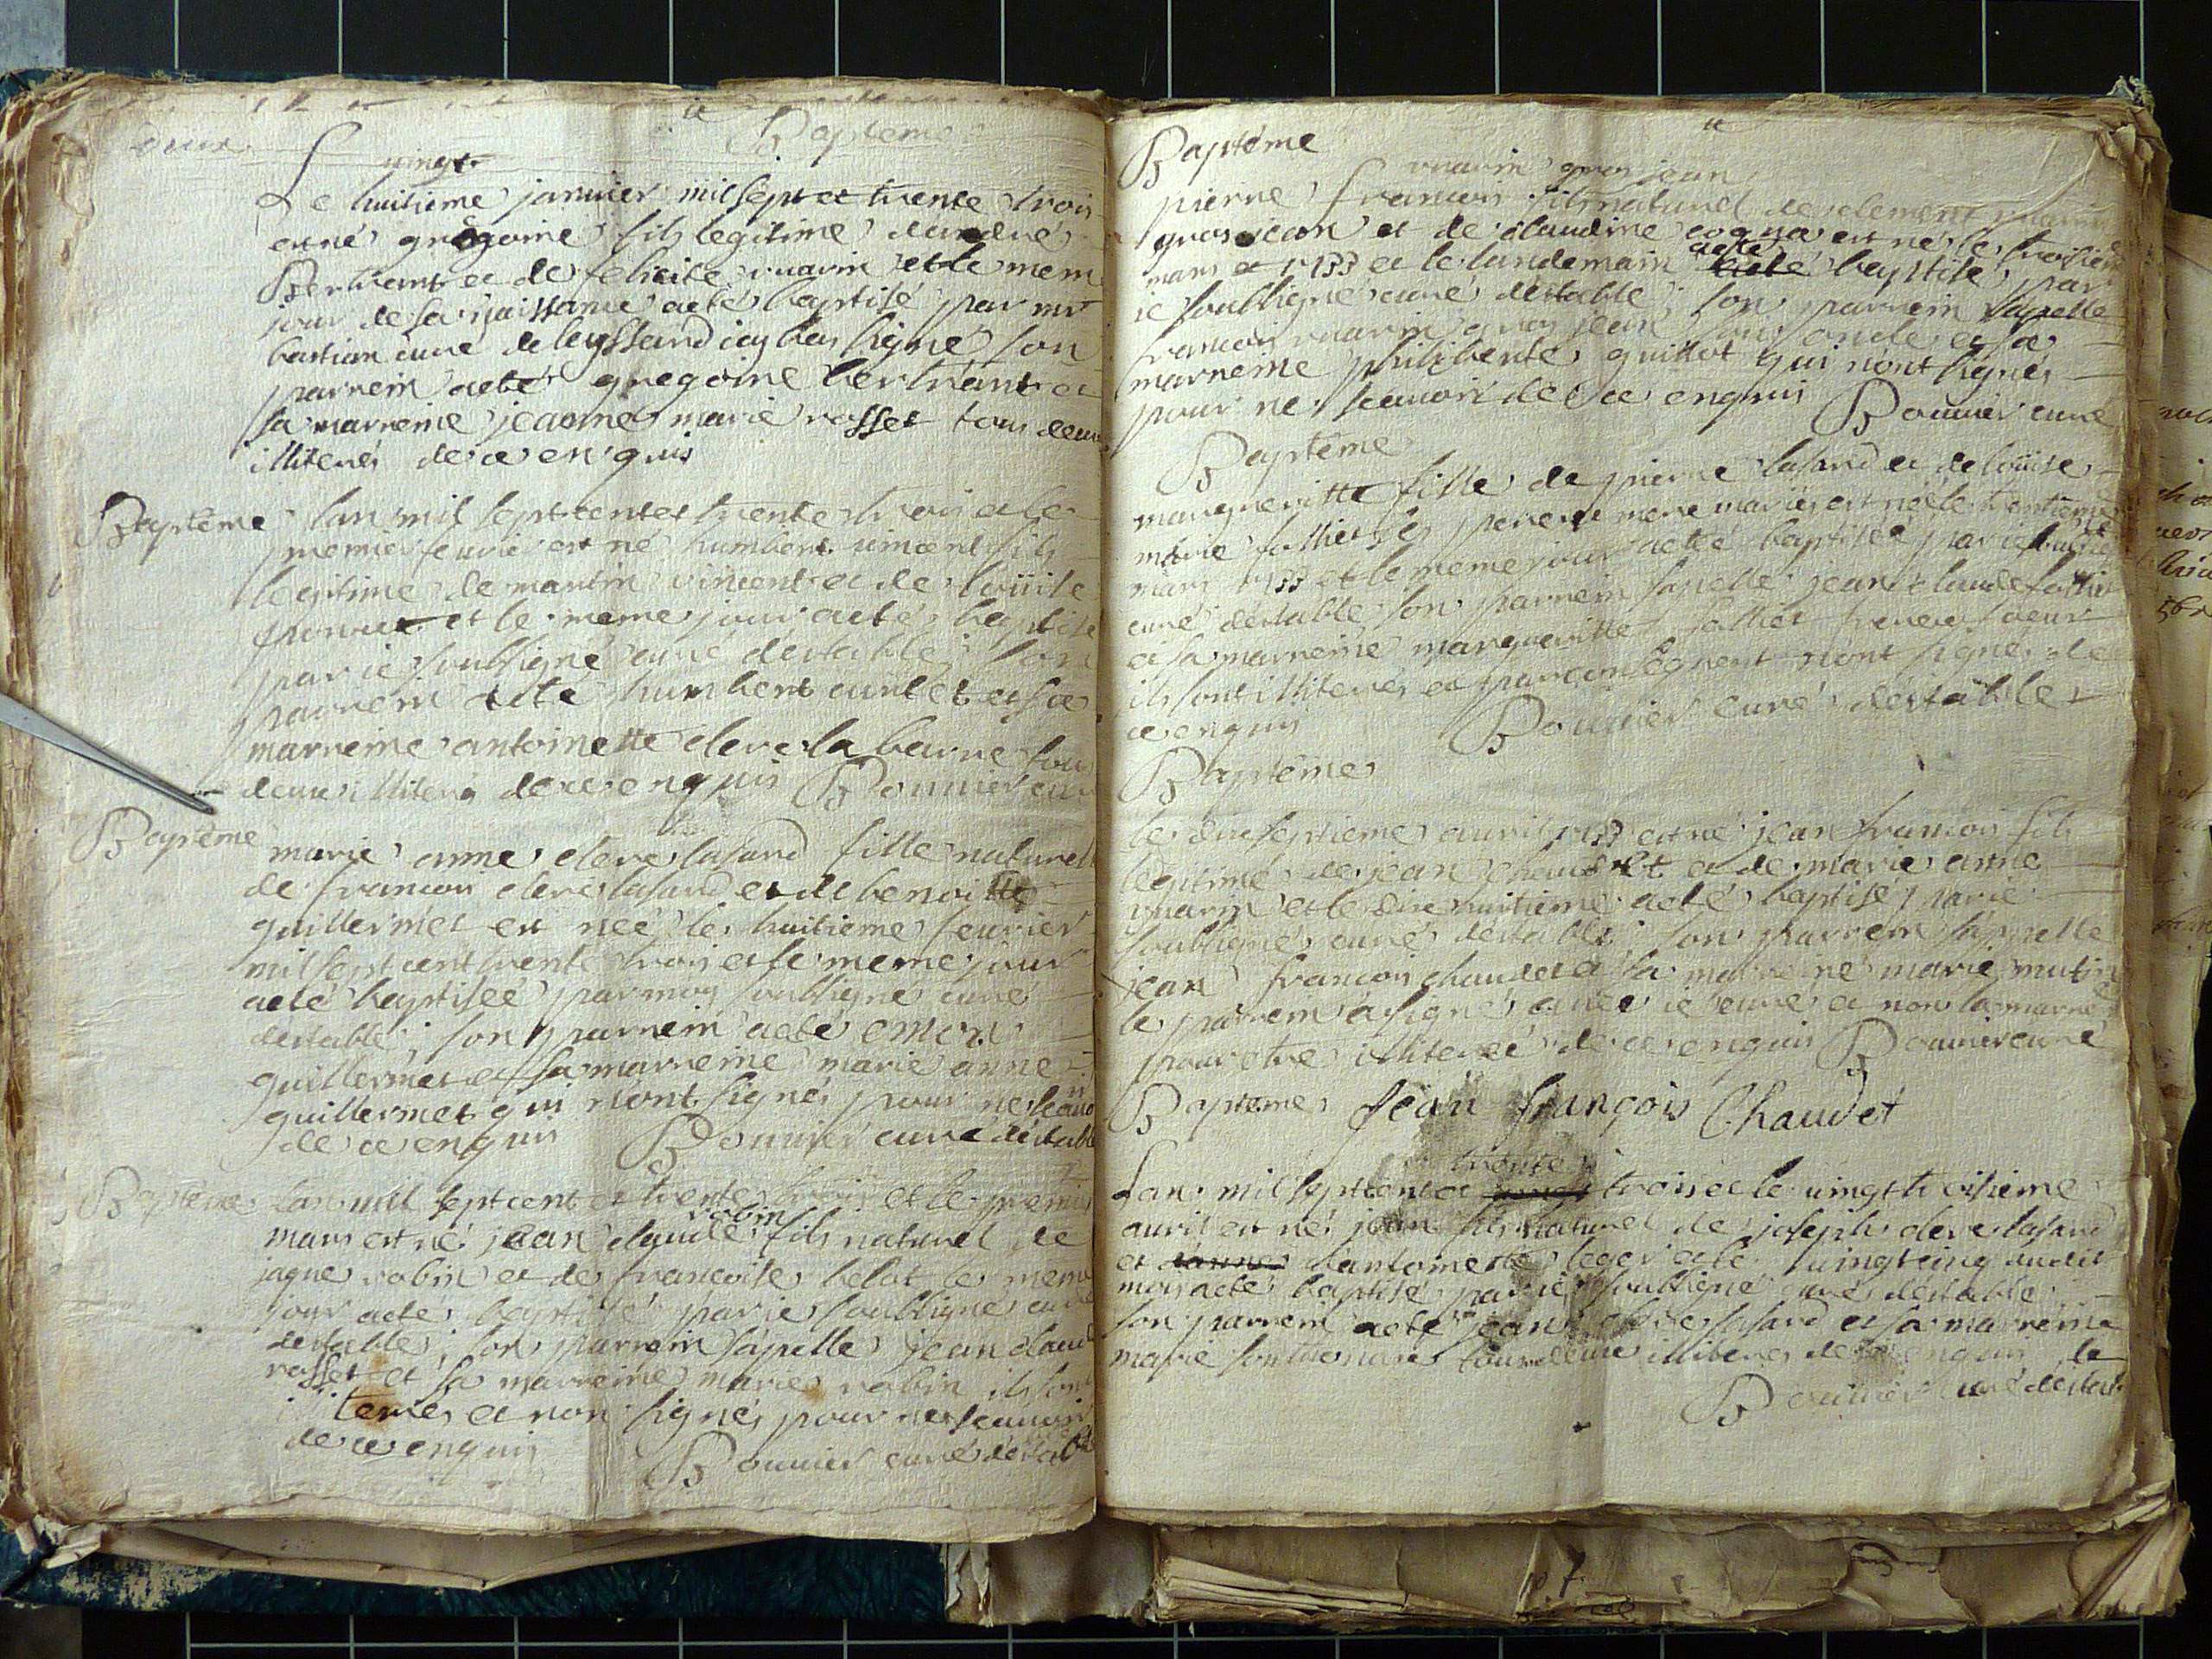 deux
Bapteme
vingt
Le huitieme janvier mil sept et trente trois
est né gregoire fils legitime dandré
Bertrant et de felicité vuarin et le mem
jour de sa naissance aeté baptisé par mr
bastian curé de leyssard icy bas signé son
parrein aeté gregoire bertrant et
sa marreine jeanne marie rosset tous deux
illiterés de ce enquis
Bapteme lan mil sept cent et trente trois et le
premier feurier est né humbert vincent fils
legitime de martin vincent et de loüise
et le meme jour aeté baptisé
par ie soussigné curé destable son
parrein aeté humbert curtet et sa
marreine antoinette clere la barre tous
deux illiterés de ce enquis Bouuier curé
Bapteme marie anne clere lasard fille naturell
de francois clere lasard et de benoitte
guillermet est neé le huitieme feurier
mil sept cent trente trois et le meme jour
aeté baptiseé par moy soussigné curé
destable ; son parrein aeté emoz
guillermet et sa marreine marie anne
guillermet qui nont signés pour ne scauoir
de ce enquis Bouuier curé déstable
Bapteme lan mil sept cent et trente trois et le premier
robin
mars est né jean claude fils naturel de
jaque robin et de francoise belot le meme
jour aeté baptisé par ie soubsigné curé
destable ; son parrein sapelle jean claud
rosset et sa marreine marie robin ils sont
illiterés et non signés pour ne scauoir
de ce enquis
Bouuier curé destable
Bapteme
vuarin gros jean
pierre francois fils naturel de clement vuarin
gros jean et de claudine cogna est né le troisiem
mars et 1733 et le landemain aeté baptisé par
ie soubsigné curé destable ; son parrein sapelle
francois vuarin gros jean son oncle et sa
marreine philiberte guillot qui nont signés
pour ne scauoir de ce enquis Bouuier curé
Bapteme
margueritte fille de pierre lasard et de loüise
marie follliet ses pere et mere mariés est neé le trentieme
mars 1733 et le meme jour aeté baptiseé par ie
curé déstable son parrein sapelle jean claude folliet
et sa marreine margueritte folliet frere et soeur
ils sont illiterés et par consequent nont signé de
ce enquis Bouuier curé déstable
Bapteme
le dix septieme auril 1733 est né jean francois fils
legitime de jean chaudet et de marie anne
vuarin et le dix huitieme aeté baptisé par ie
soubsigné curé déstable son parrein sapelle
jean francois chaudet et sa marreine marie mutin
le parrein a signé auec ie curé et non la marre
pour etre illitereé de ce enquis Bouuier curé
Bapteme Jean françois Chaudet
trente
Lan mil sept cent et trois et le uingt troisieme
auril est né jean fils naturel de joseph clere lasard
et dantoinette leger et le uingt cinq dudit
mois aeté baptisé par ie soubsigné curé déstable
son parrein aeté jean clere lasard et sa marreine
marie tous deux illiterés de ce enquis
Bouuier curé déstab
p 7